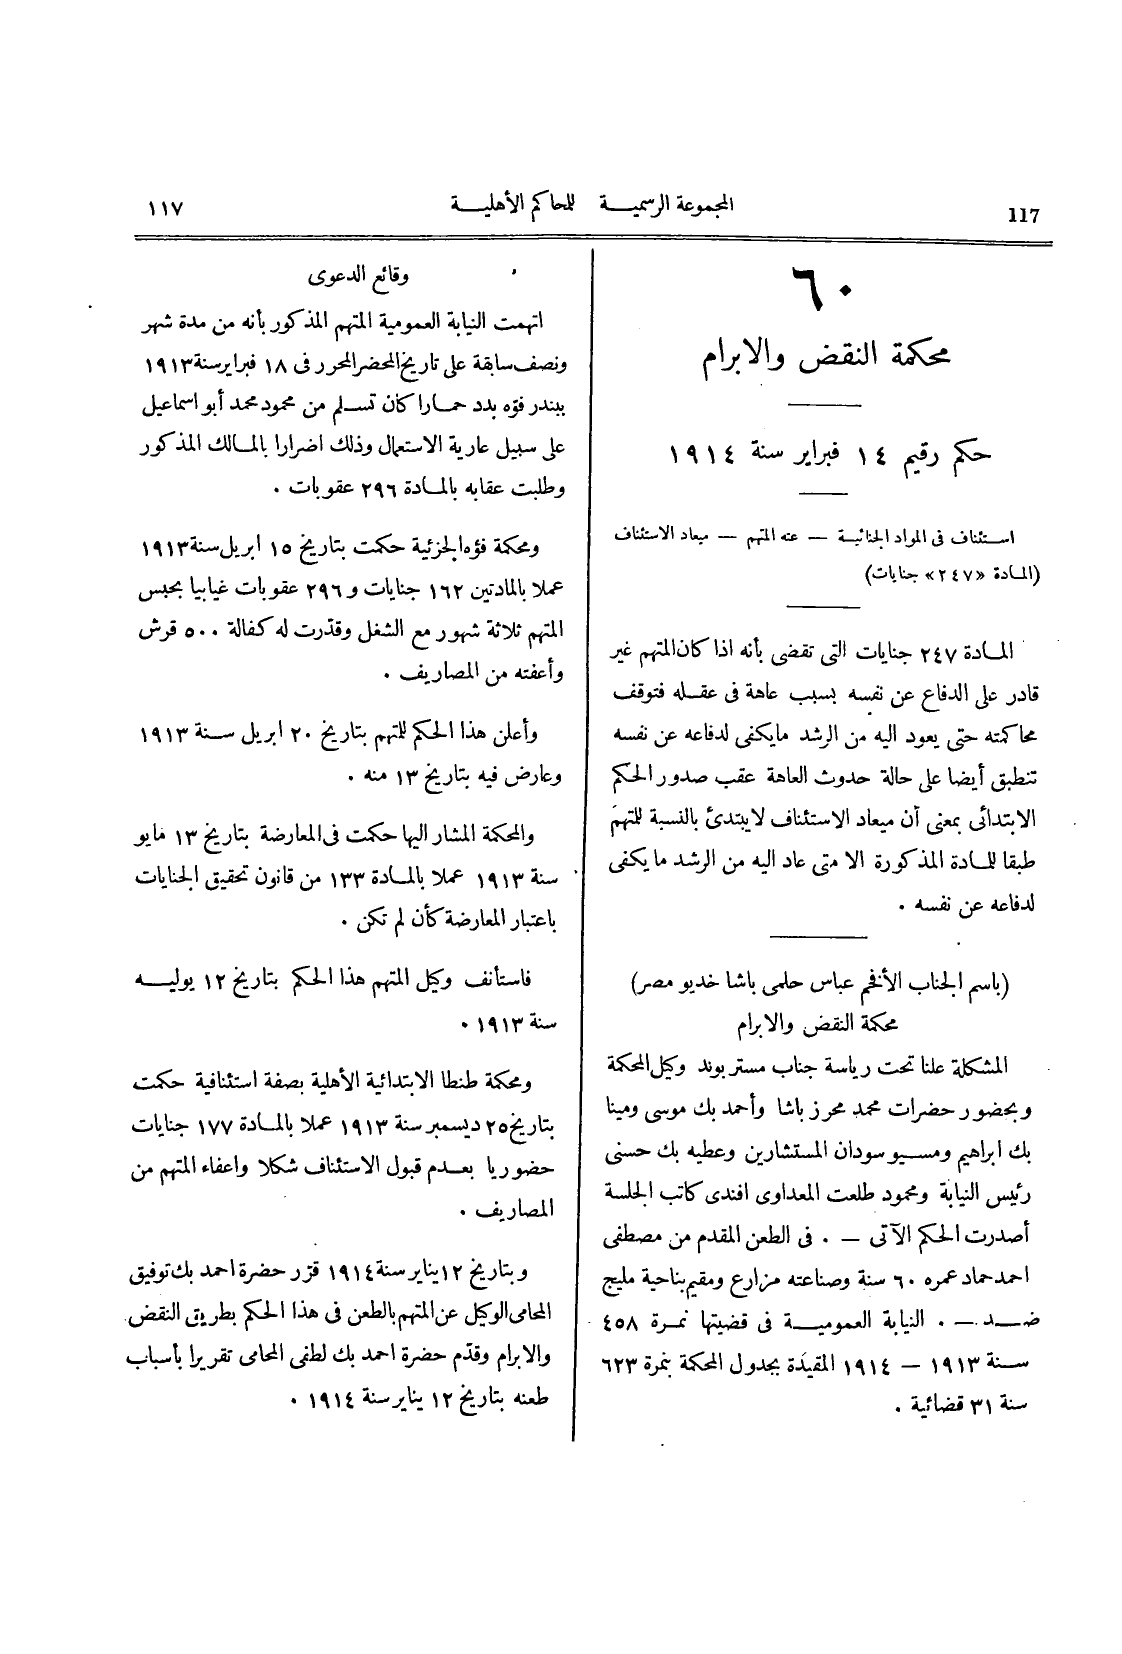 117
المجموعة الرسمية للمحاكم الأهلية
١١٧
٦٠
محكمة النقض والابرام
حكم رقيم ١٤ فبراير سنة ١٩١٤
استئناف فى المواد الجنائية — عته المتهم — ميعاد الاستئناف
(المادة «٢٤٧» جنايات)
المادة ٢٤٧ جنايات التى تقضى بأنه اذا كان المتهم غير
قادر على الدفاع عن نفسه بسبب عاهة فى عقله فتوقف
محاكمته حتى يعود اليه من الرشد مايكفى لدفاعه عن نفسه
تنطبق أيضا على حالة حدوث العاهة عقب صدور الحكم
الابتدائى بمعنى أن ميعاد الاستئناف لا يبتدئ بالنسبة للمتهم
طبقا للمادة المذكورة الا متى عاد اليه من الرشد ما يكفى
لدفاعه عن نفسه .
(باسم الجناب الأفخم عباس حلمى باشا خديو مصر)
محكمة النقض والابرام
المشكلة علنا تحت رياسة جناب مستر بوند وكيل المحكمة
وبحضور حضرات محمد محرز باشا وأحمد بك موسى ومينا
بك ابراهيم ومسيو سودان المستشارين وعطيه بك حسنى
رئيس النيابة ومحمود طلعت المعداوى افندى كاتب الجلسة
أصدرت الحكم الآتى — . فى الطعن المقدم من مصطفى
احمد حماد عمره ٦٠ سنة وصناعته مزارع ومقيم بناحية مليج
ضد — . النيابة العمومية فى قضيتها نمرة ٤٥٨
سنة ١٩١٣ — ١٩١٤ المقيدة بجدول المحكمة بنمرة ٦٢٣
سنة ٣١ قضائية .
وقائع الدعوى
اتهمت النيابة العمومية المتهم المذكور بأنه من مدة شهر
ونصف سابقة على تاريخ المحضر المحرر فى ١٨ فبراير سنة ١٩١٣
ببندر فوّه بدد حمارا كان تسلم من محمود محمد أبو اسماعيل
على سبيل عارية الاستعمال وذلك اضرارا بالمالك المذكور
وطلبت عقابه بالمادة ٢٩٦ عقوبات .
ومحكمة فوّه الجزئية حكمت بتاريخ ١٥ ابريل سنة ١٩١٣
عملا بالمادتين ١٦٢ جنايات و ٢٩٦ عقوبات غيابيا بحبس
المتهم ثلاثة شهور مع الشغل وقدّرت له كفالة ٥٠٠ قرش
وأعفته من المصاريف .
وأعلن هذا الحكم للمتهم بتاريخ ٢٠ ابريل سنة ١٩١٣
وعارض فيه بتاريخ ١٣ منه .
والمحكمة المشار اليها حكمت فى المعارضة بتاريخ ١٣ مايو
سنة ١٩١٣ عملا بالمادة ١٣٣ من قانون تحقيق الجنايات
باعتبار المعارضة كأن لم تكن .
فاستأنف وكيل المتهم هذا الحكم بتاريخ ١٢ يوليه
سنة ١٩١٣ .
ومحكمة طنطا الابتدائية الأهلية بصفة استئنافية حكمت
بتاريخ ٢٥ ديسمبر سنة ١٩١٣ عملا بالمادة ١٧٧ جنايات
حضوريا بعدم قبول الاستئناف شكلا واعفاء المتهم من
المصاريف .
وبتاريخ ١٢ يناير سنة ١٩١٤ قرّر حضرة احمد بك توفيق
المحامى الوكيل عن المتهم بالطعن فى هذا الحكم بطريق النقض
والابرام وقدّم حضرة احمد بك لطفى المحامى تقريرا بأسباب
طعنه بتاريخ ١٢ يناير سنة ١٩١٤ .